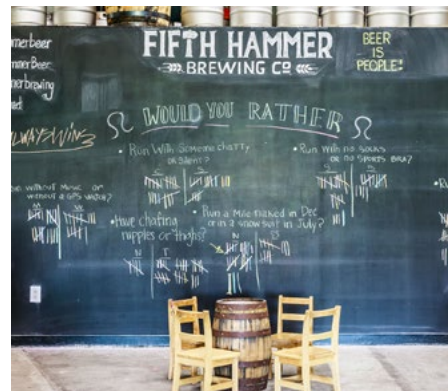 FIFTH HAMMER
BREWING CO
BEER
IS
PEOPLE!
WOULD YOU RATHER
• Run With Someone chatty
or Silent?
• Run with no socks
or no sports bra?
without Music or
without a GPS watch?
• Have chafing
nipples or thighs?
N T
• Run a Mile naked in Dec
or in a snowsuit in July?
N S